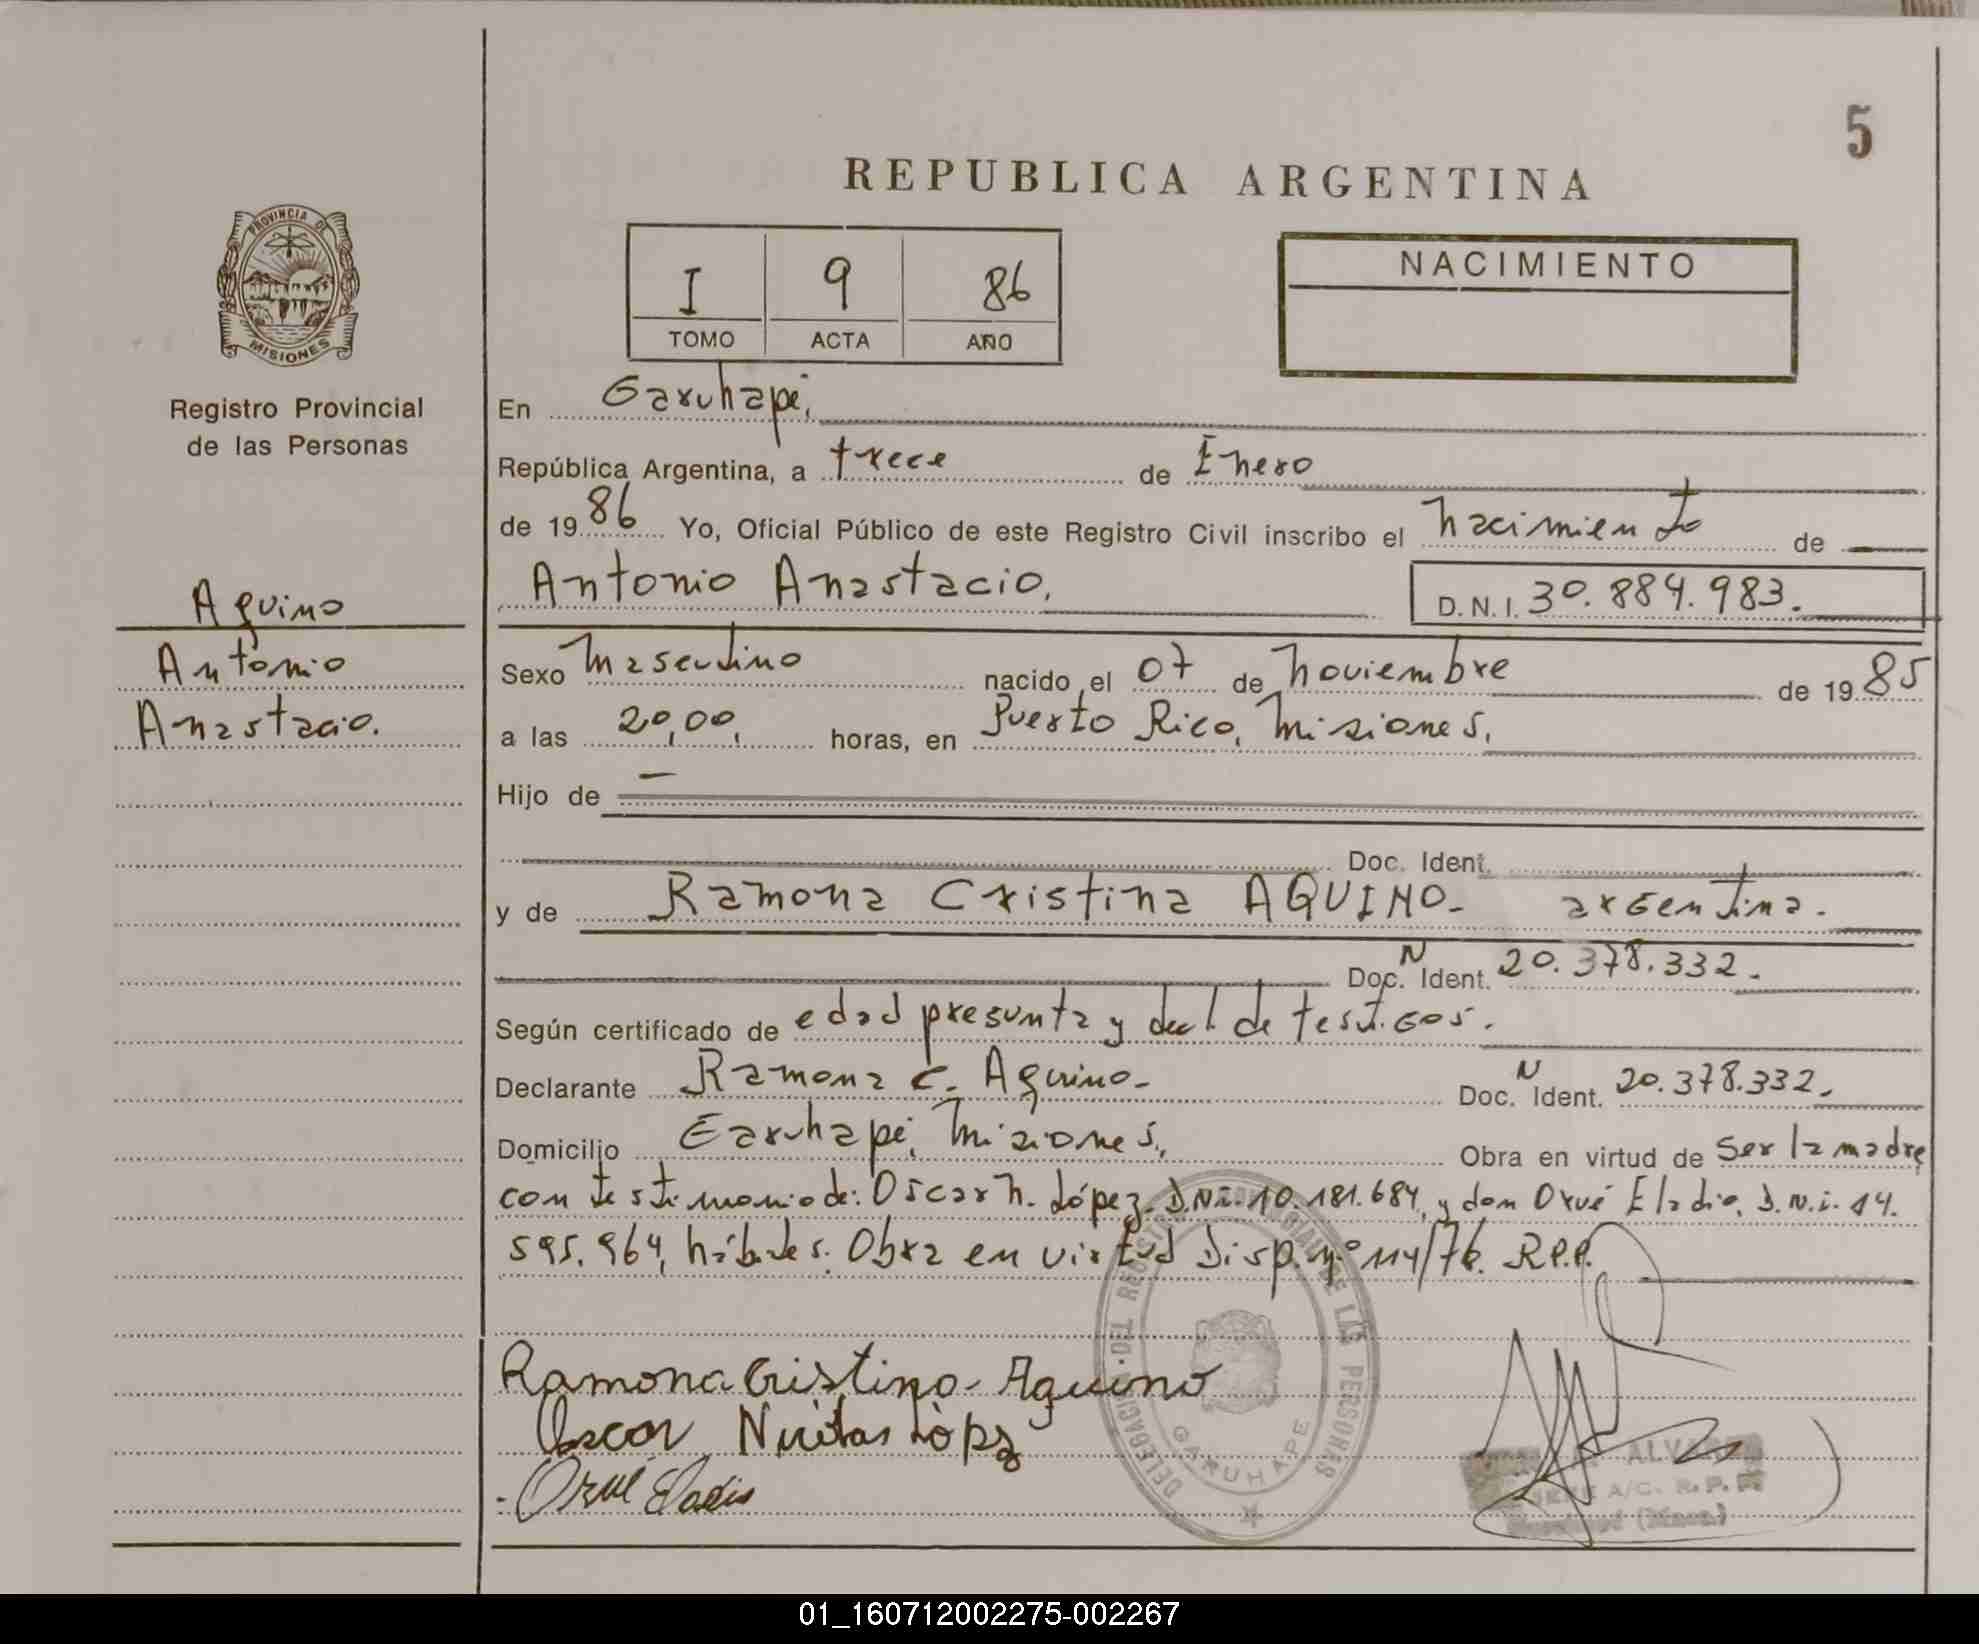 5
REPUBLICA ARGENTINA
PROVINCIA DE
MISIONES
I 9 86
TOMO ACTA AÑO
NACIMIENTO
Registro Provincial
de las Personas
En Garuhapé,
República Argentina, a trece de Enero
de 1986 Yo, Oficial Público de este Registro Civil inscribo el nacimiento de
Antonio Anastacio. D. N. I. 30.884.983.
Aquino
Antonio
Anastacio.
Sexo Masculino nacido el 07 de noviembre de 1985
a las 20,00, horas, en Puerto Rico, Misiones.
Hijo de —
Doc. Ident.
y de Ramona Cristina AQUINO- argentina.
Doc. N Ident. 20.378.332.
Según certificado de edad presunta y decl. de testigos.
Declarante Ramona C. Aquino- Doc. N Ident. 20.378.332.
Domicilio Garuhapé, Misiones, Obra en virtud de ser la madre
con testimonio de: Oscar N. López. D.N.i. 10.181.684, y don Orué Eladio, D.N.i. 14.
595.964, hábiles. Obra en virtud Disp. nº 114/76. R.P.P.
Ramona Cristina Aquino
Oscar López
Orué Eladio
DELEGACIÓN DEL REGISTRO PROVINCIAL DE LAS PERSONAS
GARUHAPE
A/C. R.P.P.
01_160712002275-002267